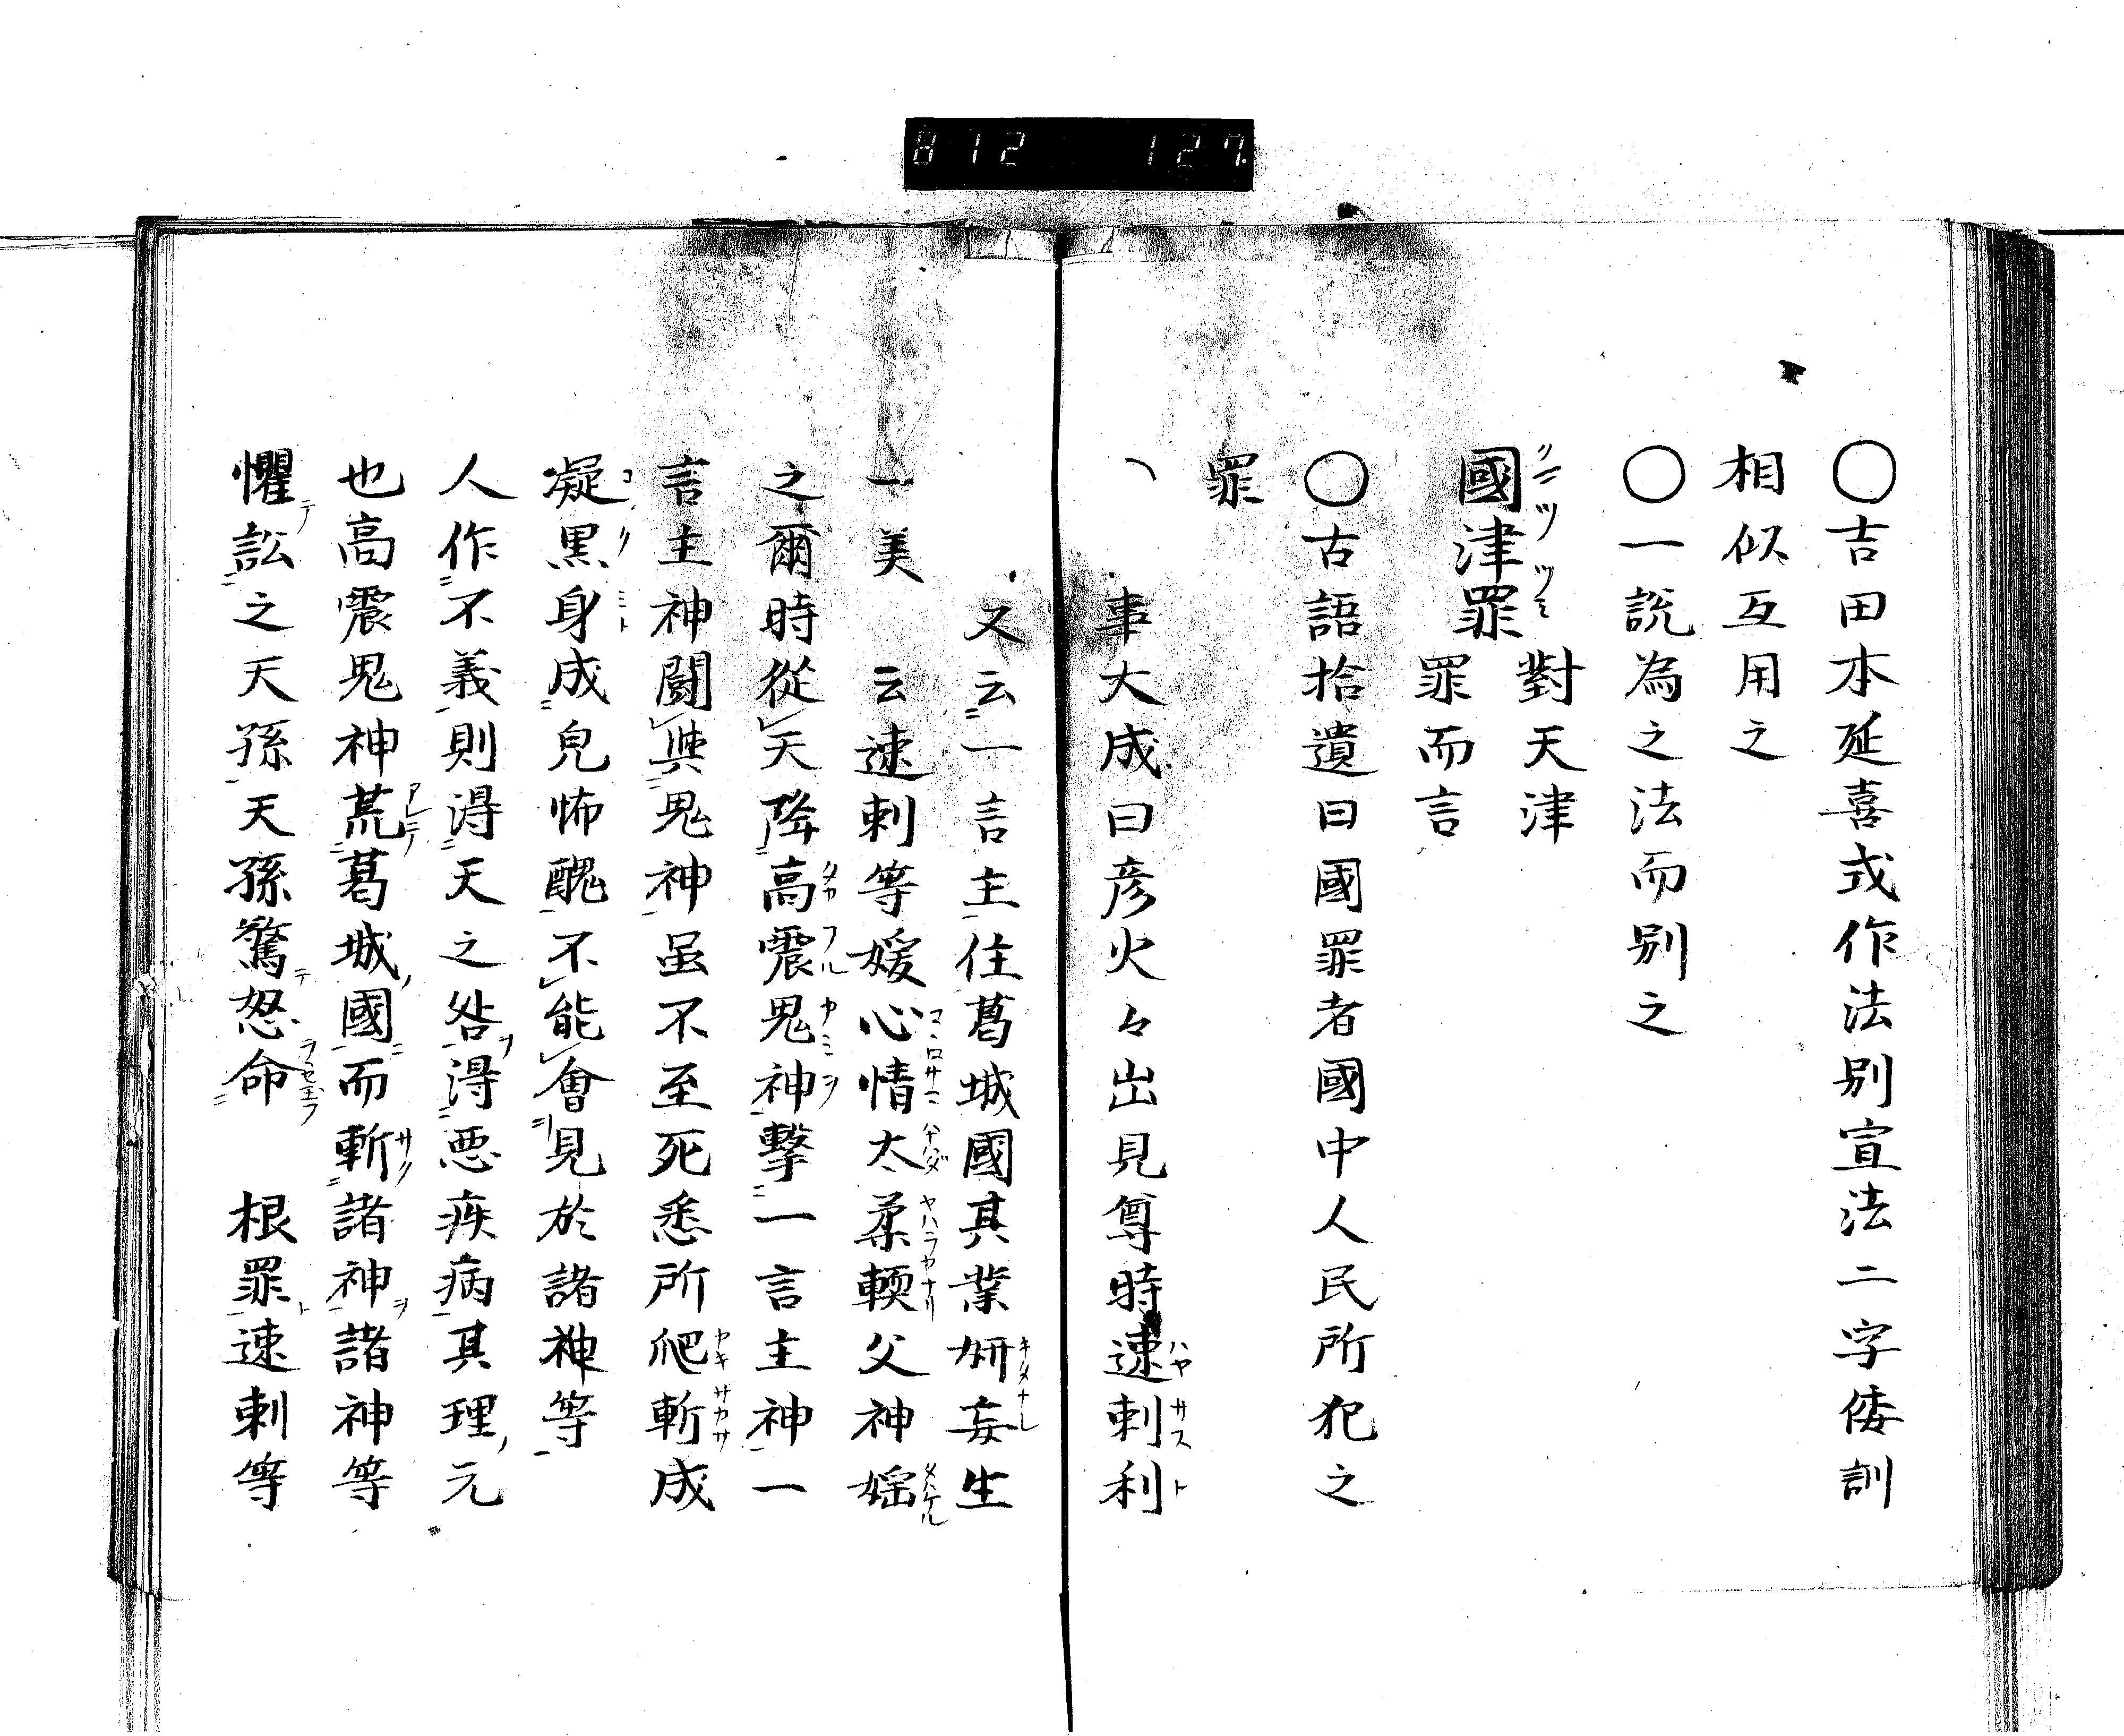 812 127
○吉田本延喜式作法別宣法二字倭訓
相似互用之
○一説為之法而別之
國津罪 對天津
罪而言
クニツツミ
○古語拾遺曰國罪者國中人民所犯之
罪
事大成曰彦火々出見尊時速刺利
ハヤサスト
又云一言主住葛城國其業妍妄生
キタナシ
一美 云速刺等媛心情太柔輭父神婬
ハナハダ ヤハラカナリ
之爾時從天降高震鬼神擊一言主神一
タカフルカミヲ
言主神闘與鬼神虽不至死悉所爬斬成
凝黒身成皃怖醜不能會見於諸神等
人作不義則淂天之咎淂悪疾病其理元
也高震鬼神荒葛城國而斬諸神諸神等
アレテ
懼訟之天孫天孫驚怒命 根罪速刺等